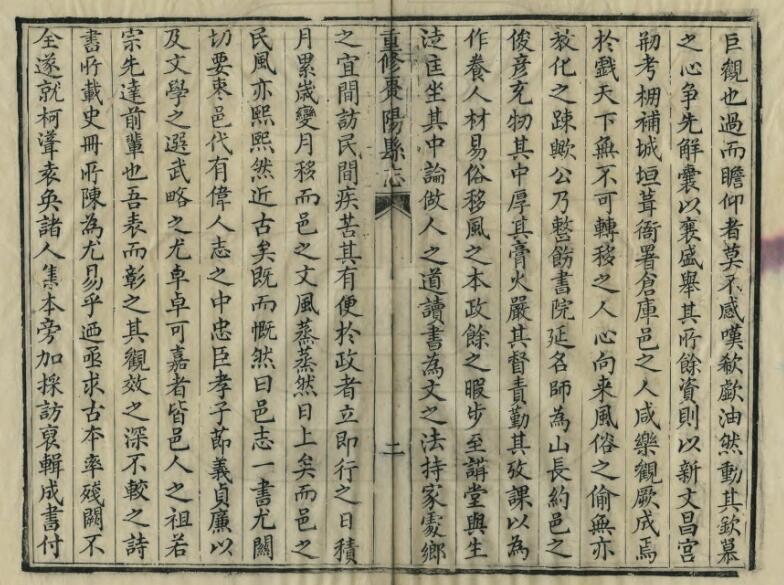 巨觀也過而瞻仰者莫不感嘆欷歔油然動其欽慕
之心爭先解囊以襄盛舉其所餘資則以新文昌宮
剏考棚補城垣葺衙署倉庫邑之人咸樂觀厥成焉
於戲天下無不可轉移之人心向来風俗之偷無亦
教化之踈歟公乃整飭書院延名師為山長約邑之
俊彦充牣其中厚其膏火嚴其督責勤其攷課以為
作養人材易俗移風之本政餘之暇步至講堂與生
徒匡坐其中論做人之道讀書為文之法持家處鄉
重修棗陽縣志
二
之宜間訪民間疾苦其有便於政者立即行之日積
月累歲變月移而邑之文風蒸蒸然日上矣而邑之
民風亦熙熙然近古矣既而慨然曰邑志一書尤關
切要棗邑代有偉人志之中忠臣孝子節義貞廉以
及文學之選武略之尤卓卓可嘉者皆邑人之祖若
宗先達前輩也吾表而彰之其觀效之深不較之詩
書所載史冊所陳為尤易乎迺亟求古本率殘闕不
全遂就柯漌袁奐諸人集本旁加採訪裒輯成書付